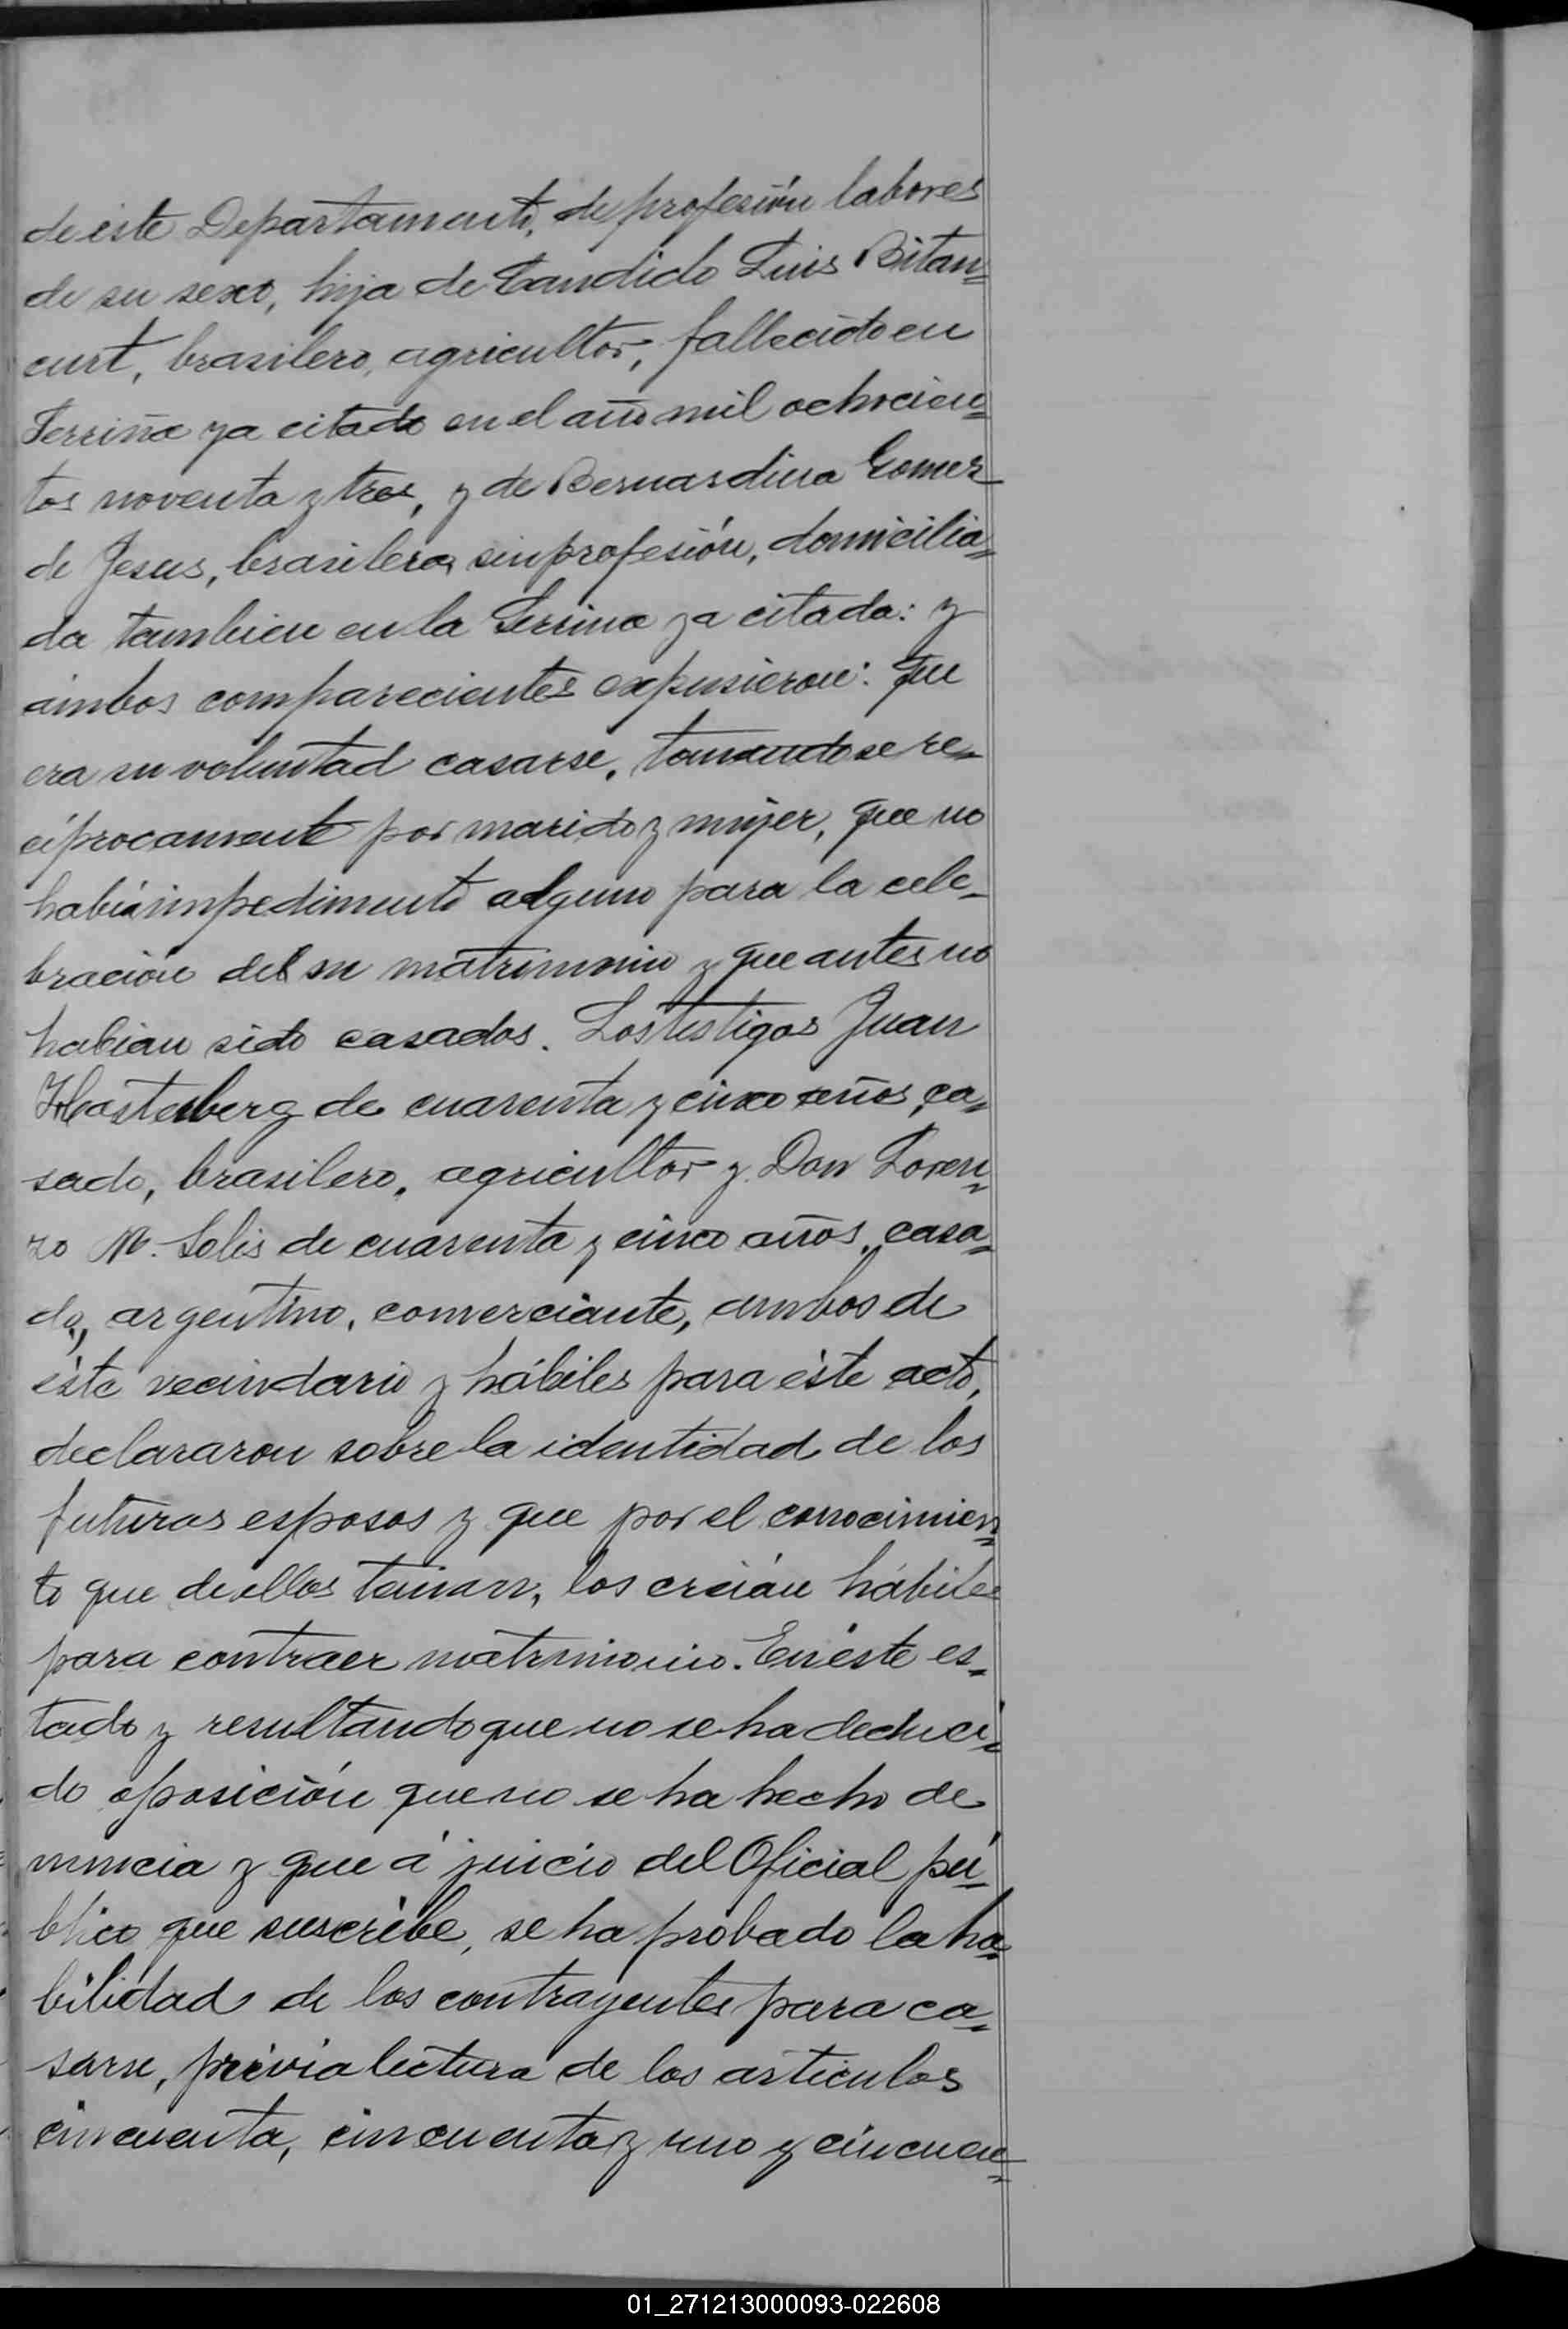 de éste Departamento, de profesión labores
de su sexo, hija de Candido Luis Bitan=
curt, brasilero, agricultor, fallecido en
ya citado en el año mil ochocien=
tos noventa y tres, y de Bernardina Gomez
de Jesus, brasilera, sin profesión, domicilia=
da tambien en la ya citada: y
ámbos comparecientes expusieron: Que
era su voluntad casarse, tomandose re=
ciprocamente por marido y mujer, que no
había impedimento alguno para la cele-
bración del su matrimonio y que antes no
habian sido casados. Los testigos Juan
de cuarenta y cinco años, ca=
sado, brasilero, agricultor y Don Loren=
zo M. Solis de cuarenta y cinco años, casa=
do, argentino, comerciante, ambos de
éste vecindario y hábiles para éste acto,
declararon sobre la identidad de los
futuros esposos y que por el conocimien=
to que de ellos tenian, los creián hábiles
para contraer matrimonio. En éste es=
tado y resultando que no se ha deduci=
do oposición que no se ha hecho de
nuncia y que á juicio del Oficial pú=
blico que suscribe, se ha probado la ha=
bilidad de los contrayentes para ca=
sarse, prévia lectura de los articulos
cincuenta, cincuenta y uno y cincuen=
01_271213000093-022608